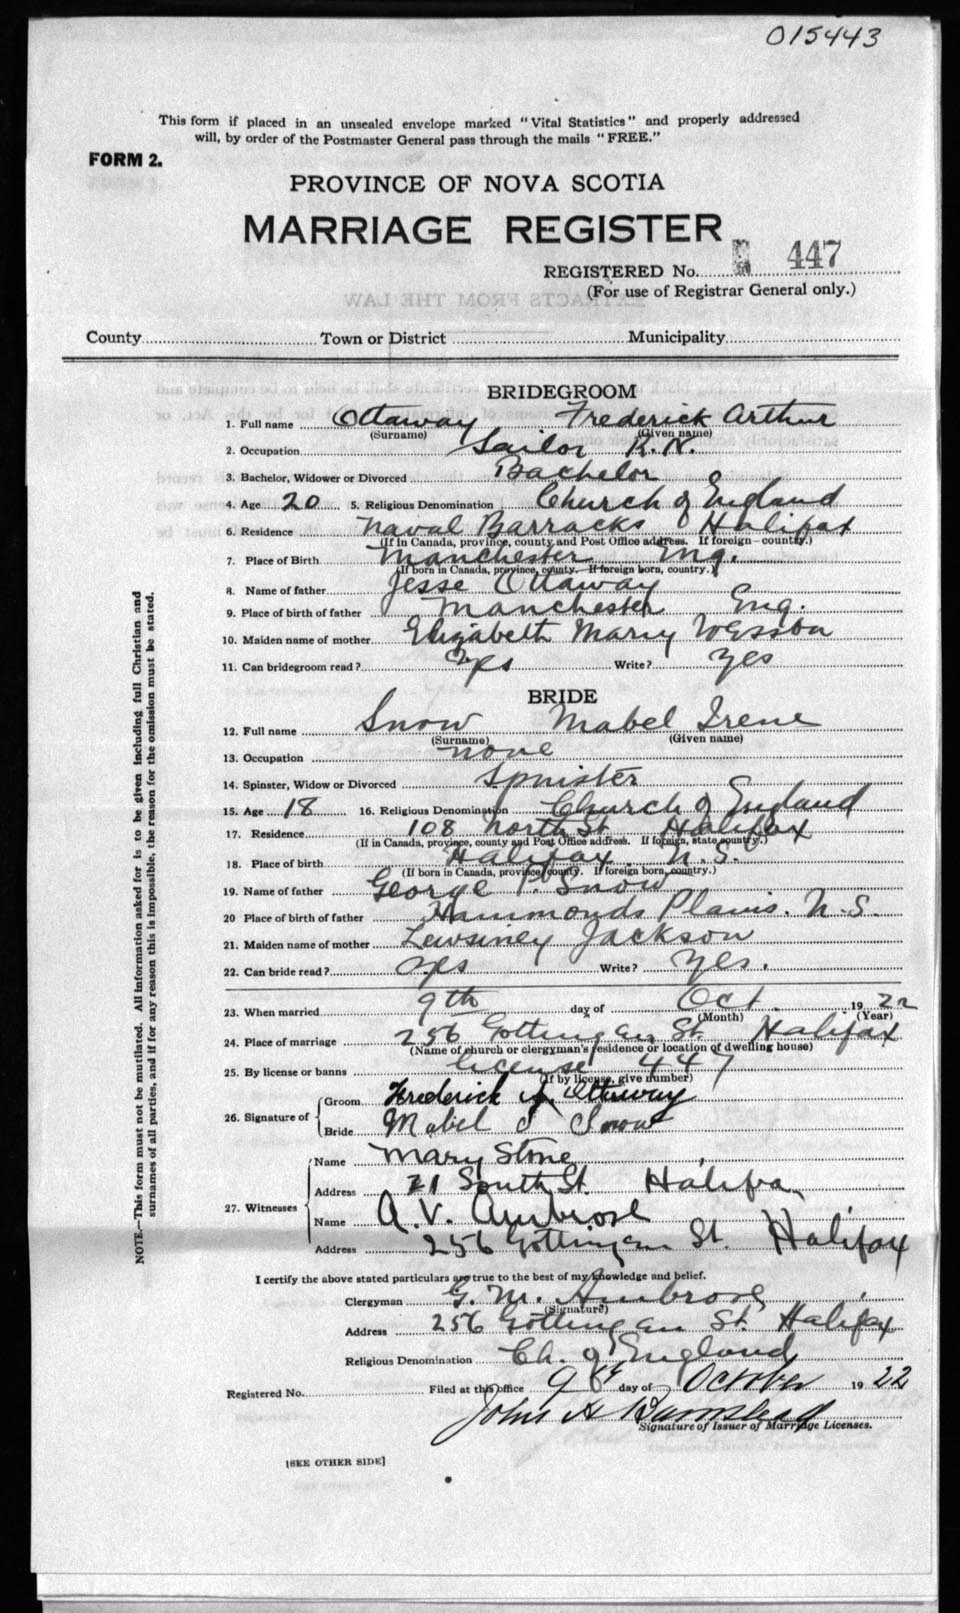 015443
This form if placed in an unsealed envelope marked "Vital Statistics" and properly addressed
will, by order of the Postmaster General pass through the mails "FREE."
FORM 2.
PROVINCE OF NOVA SCOTIA
MARRIAGE REGISTER
REGISTERED No. 447
(For use of Registrar General only.)
County Town or District Municipality
BRIDEGROOM
1. Full name Ottaway Frederick Arthur
(Surname) (Given name)
2. Occupation Sailor R.N.
3. Bachelor, Widower or Divorced Bachelor
4. Age 20 5. Religious Denomination Church of England
6. Residence Naval Barracks Halifax
(If in Canada, province, county, and Post Office address. If foreign—country.)
7. Place of Birth Manchester Eng.
(If born in Canada, province, county. If foreign born, country.)
8. Name of father Jesse Ottaway
9. Place of birth of father Manchester Eng.
10. Maiden name of mother Elizabeth Mary Wesson
11. Can bridegroom read? Yes Write? Yes
BRIDE
12. Full name Snow Mabel Irene
(Surname) (Given name)
13. Occupation none
14. Spinster, Widow or Divorced Spnister
15. Age 18 16. Religious Denomination Church of England
17. Residence 108 North St Halifax
(If in Canada, province, county and Post Office address. If foreign, state country.)
18. Place of birth Halifax N.S.
(If born in Canada, province, county. If foreign born, country.)
19. Name of father George P. Snow
20 Place of birth of father Hammonds Plains. N.S.
21. Maiden name of mother Jackson
22. Can bride read? Yes Write? Yes.
23. When married 9th day of Oct. 1922
(Month) (Year)
24. Place of marriage 256 Gottingen St. Halifax
(Name of church or clergyman's residence or location of dwelling house)
25. By license or banns license 447
(If by license, give number)
26. Signature of Groom Frederick A. Ottaway
Bride Mabel I Snow
27. Witnesses Name Mary Stone
Address 21 South St. Halifax
Name A. V. Ambrose
Address 256 Gottingen St. Halifax
I certify the above stated particulars are true to the best of my knowledge and belief.
Clergyman G. M. Ambrose
(Signature)
Address 256 Gottingen St. Halifax
Religious Denomination Ch. of England
Registered No. Filed at this office 9th day of October 1922
John A Barnstead
Signature of Issuer of Marriage Licenses.
[SEE OTHER SIDE]
NOTE.—This form must not be mutilated. All information asked for is to be given including full Christian and
surnames of all parties, and if for any reason this is impossible, the reason for the omission must be stated.